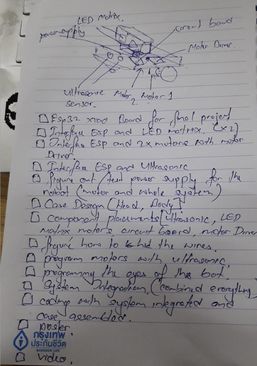 LED Matrix.
power supply
circuit board
Motor Driver
ultrasonic Motor 2 Motor 1
sensor.
Esp32 xiao Board for final project
Interface Esp and LED matrix. (x2)
Interface Esp and 2x motors with motor
Driver
Interface Esp and Ultrasonic
Figure out / test power supply for the
robot (motor and whole system)
Case Design (Head, Body)
component placements (Ultrasonic, LED
Matrix motors, circuit board, motor Driver
figure how to hind the wires.
program motors with ultrasonic.
programming the eyes of the bot.
System Integration (combined everything)
coding with system integrated and
case assembled.
Poster
Video.
กรุงเทพ
ประกันชีวิต